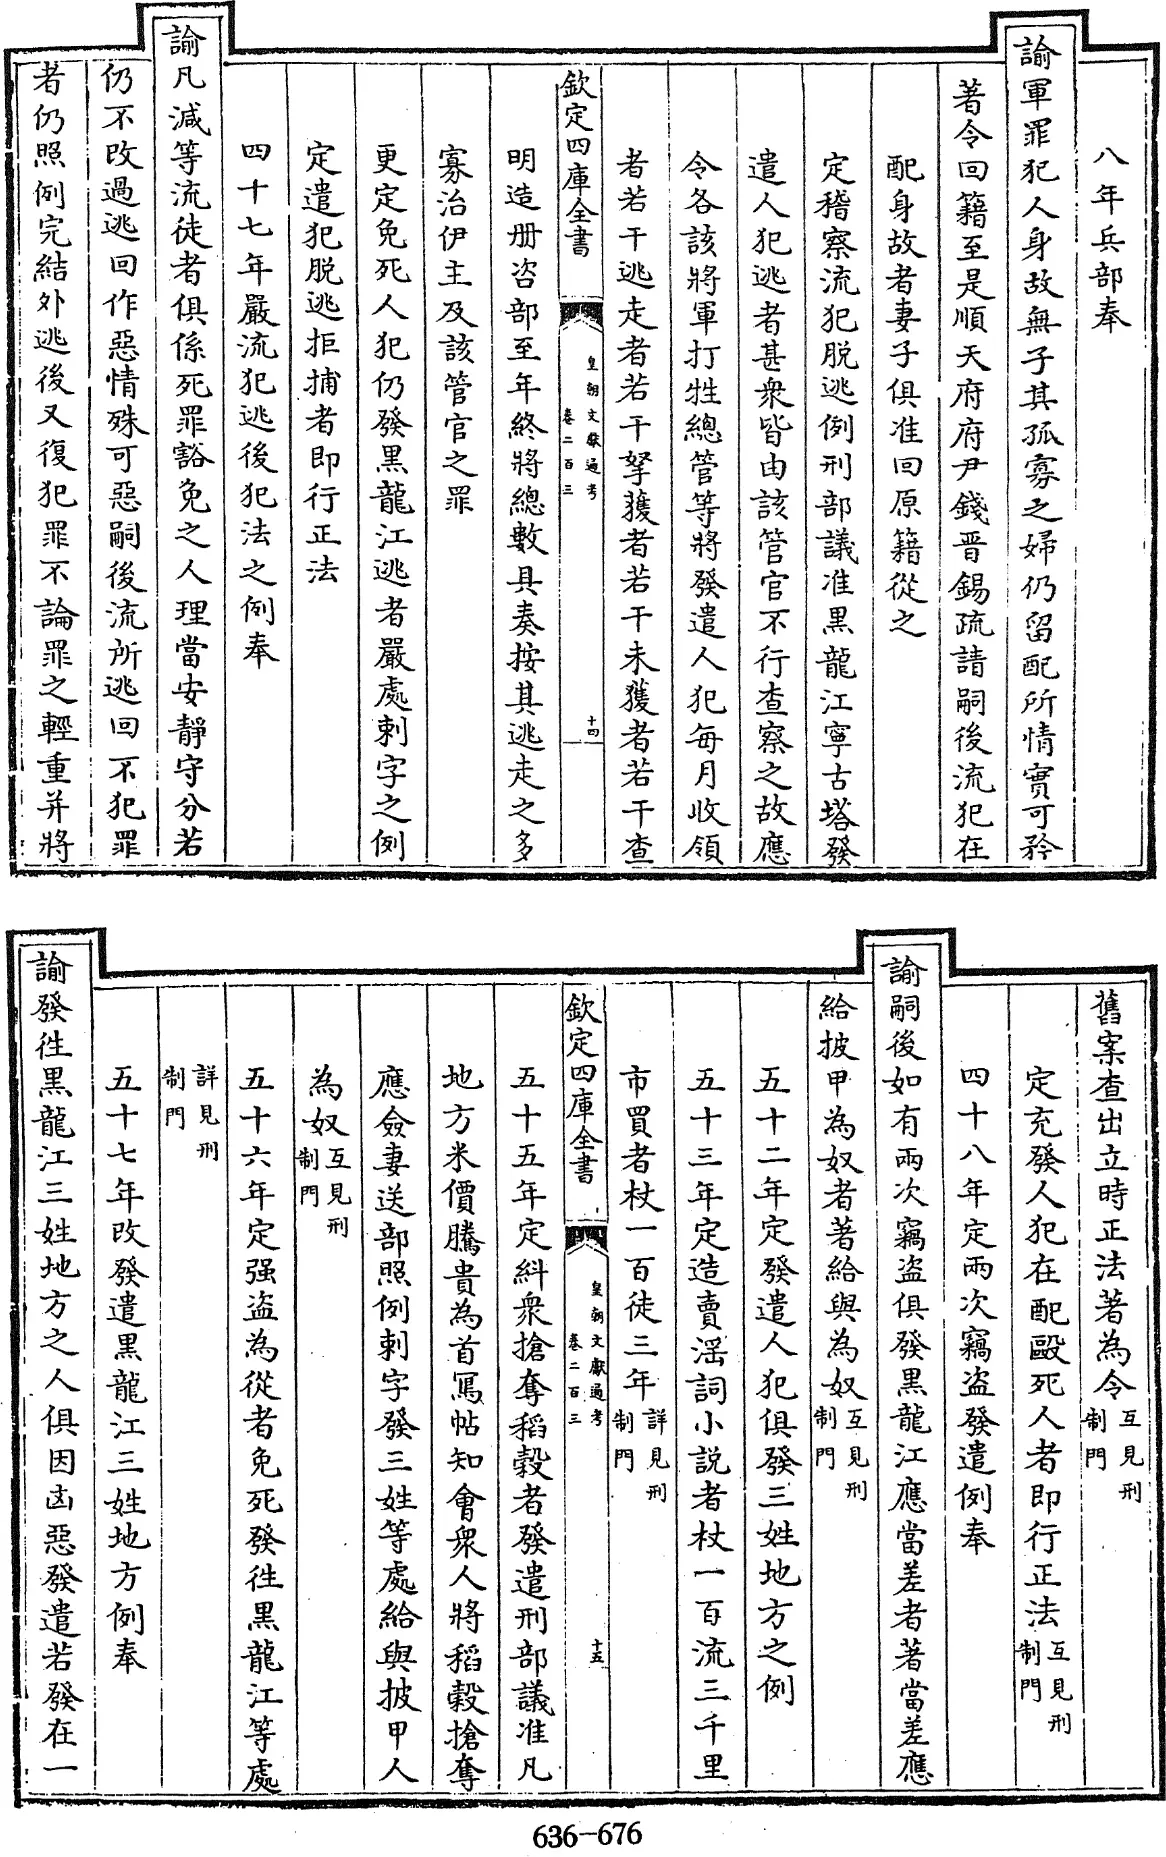 八年兵部奉
諭軍罪犯人身故無子其孤寡之婦仍留配所情實可矜
著令回籍至是順天府府尹錢晋錫疏請嗣後流犯在
配身故者妻子俱准回原籍從之
定稽察流犯脱逃例刑部議准黒龍江寧古塔發
遣人犯逃者甚衆皆由該管官不行查察之故應
令各該將軍打牲總管等將發遣人犯每月收領
者若干逃走者若干拏獲者若干未獲者若干查
欽定四庫全書
皇朝文獻通考
卷二百三
十四
明造册咨部至年終將總數具奏按其逃走之多
寡治伊主及該管官之罪
更定免死人犯仍發黒龍江逃者嚴處刺字之例
定遣犯脱逃拒捕者即行正法
四十七年嚴流犯逃後犯法之例奉
諭凡減等流徒者俱係死罪豁免之人理當安靜守分若
仍不改過逃回作惡情殊可惡嗣後流所逃回不犯罪
者仍照例完結外逃後又復犯罪不論罪之輕重并將
舊案查出立時正法著為令互見刑制門
定充發人犯在配毆死人者即行正法互見刑制門
四十八年定兩次竊盗發遣例奉
諭嗣後如有兩次竊盗俱發黒龍江應當差者著當差應
給披甲為奴者著給與為奴互見刑制門
五十二年定發遣人犯俱發三姓地方之例
五十三年定造賣滛詞小説者杖一百流三千里
市買者杖一百徒三年詳見刑制門
欽定四庫全書
皇朝文獻通考
卷二百三
十五
五十五年定糾衆搶奪稻穀者發遣刑部議准凡
地方米價騰貴為首寫帖知會衆人將稻穀搶奪
應僉妻送部照例刺字發三姓等處給與披甲人
為奴互見刑制門
五十六年定强盗為從者免死發徃黒龍江等處
詳見刑制門
五十七年改發遣黒龍江三姓地方例奉
諭發徃黒龍江三姓地方之人俱因凶惡發遣若發在一
636-676